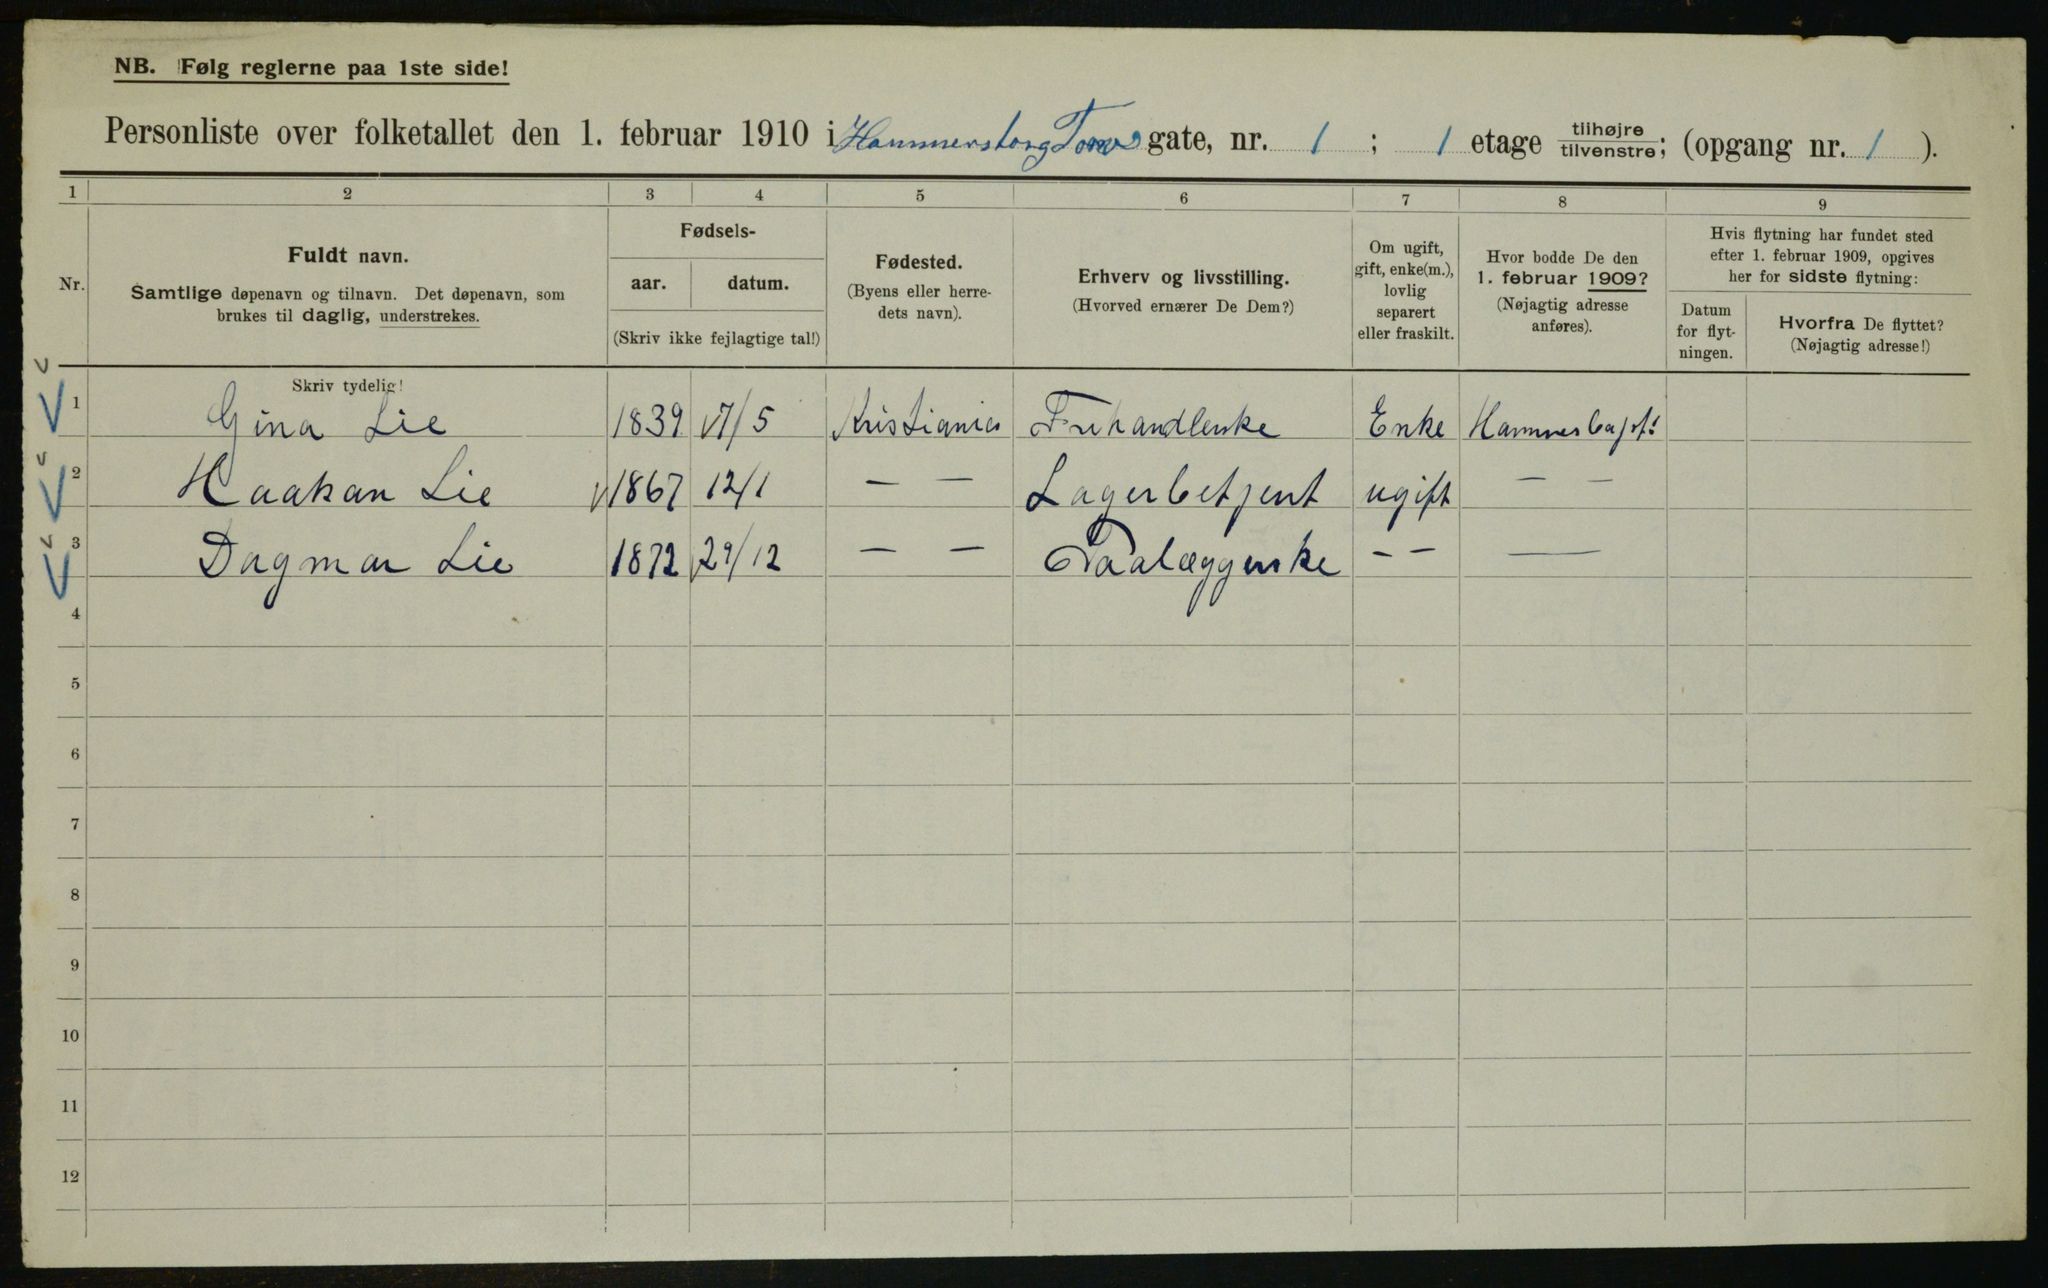 NB. Følg reglerne paa 1ste side!
Personliste over folketallet den 1. februar 1910 i Hammersborg Torv gate, nr. 1 ; 1 etage tilhøjre tilvenstre; (opgang nr. 1 ).
1 2 3 4 5 6 7 8 9
Nr.
Fuldt navn.
Samtlige døpenavn og tilnavn. Det døpenavn, som
brukes til daglig, understrekes.
Fødsels-
aar. datum.
(Skriv ikke fejlagtige tal!)
Fødested.
(Byens eller herre-
dets navn).
Erhverv og livsstilling.
(Hvorved ernærer De Dem?)
Om ugift,
gift, enke(m.),
lovlig
separert
eller fraskilt.
Hvor bodde De den
1. februar 1909?
(Nøjagtig adresse
anføres).
Hvis flytning har fundet sted
efter 1. februar 1909, opgives
her for sidste flytning:
Datum
for flyt-
ningen.
Hvorfra De flyttet?
(Nøjagtig adresse!)
Skriv tydelig!
1 Gina Lie 1839 17/5 Kristiania Fruhandlerske Enke
2 Haakan Lie 1867 12/1 — — Lagerbetjent ugift — —
3 Dagmar Lie 1872 29/12 — — Paalæggerske — — —
4
5
6
7
8
9
10
11
12